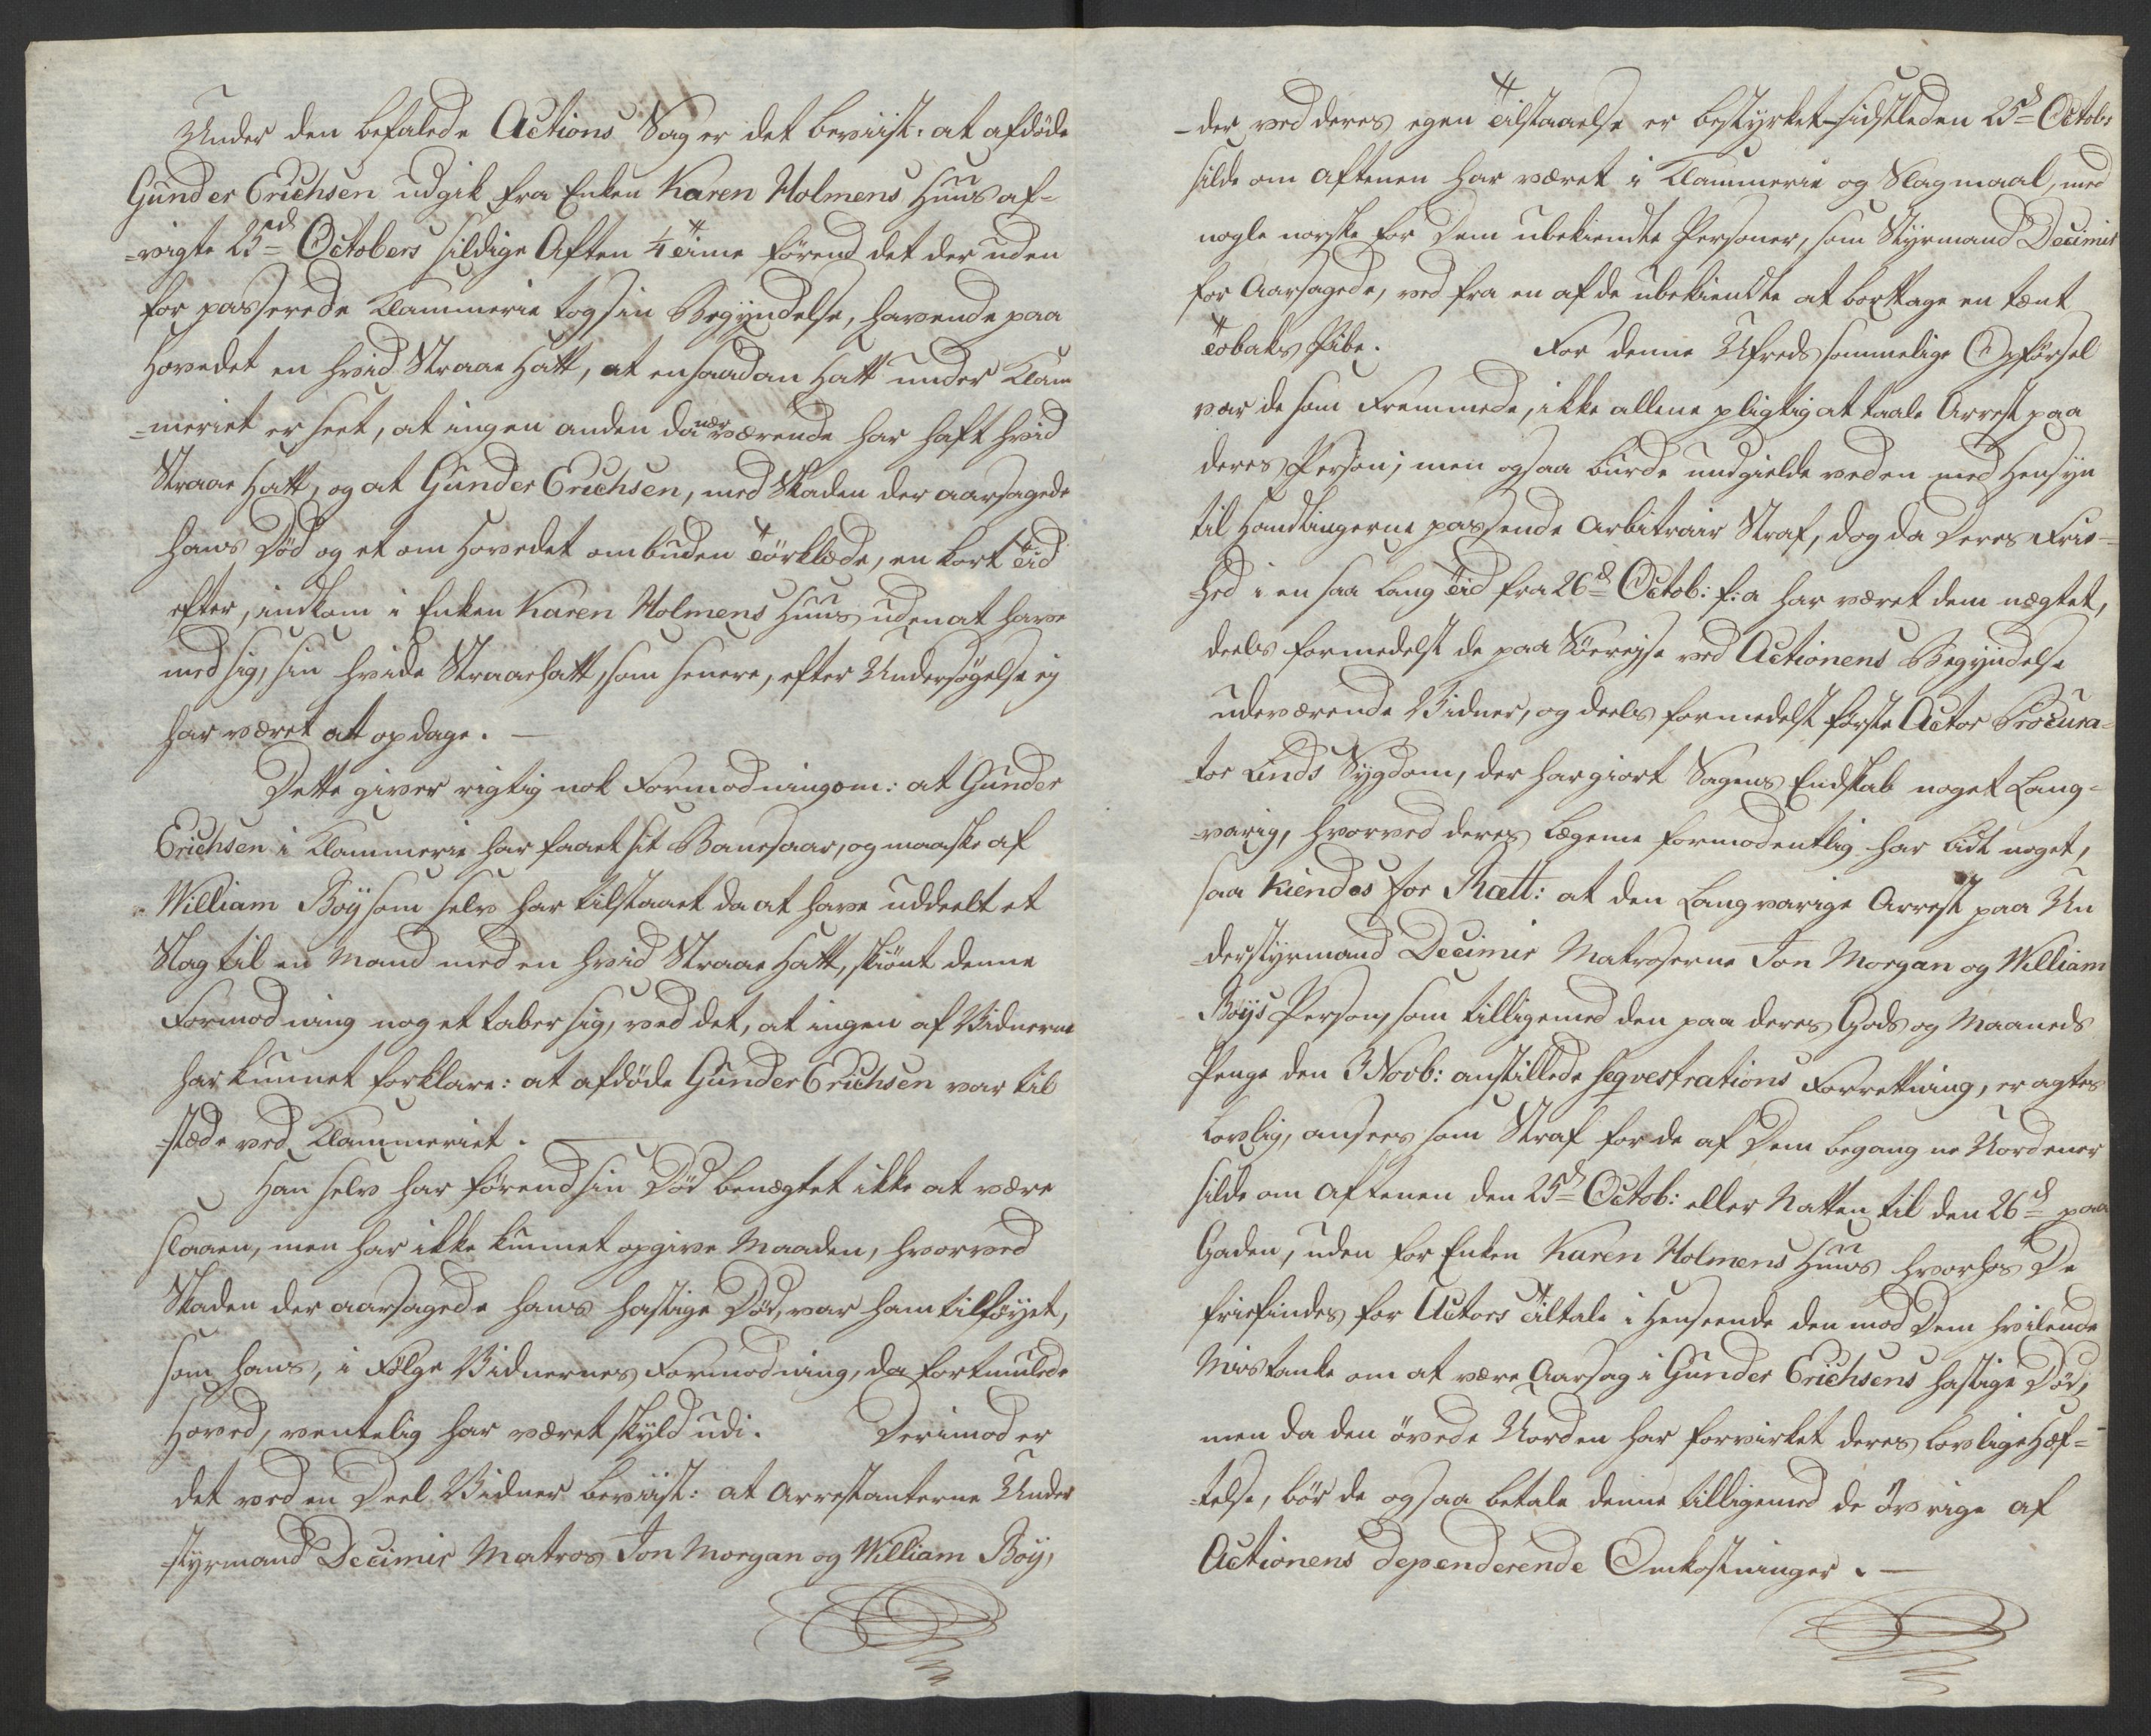 Under den befalede Actions Sag er det beviist: at afdöde
Gunder Erichsen udgik fra Enken Karen Holmens Huus af-
-vigte 25de Octobers sildige Aften 1/4 Time förend det der uden
for passerede Klammerie tog sin Begyndelse, havende paa
Hovedet en hvid Straae Hatt, at en saadan Hatt under Klam
-meriet er seet, at ingen anden da nærværende har haft hvid
Straae Hatt, og at Gunder Erichsen, med Skaden der aarsagede
hans Död og et om Hovedet ombunden Törklæde, en kort Tid
efter, indkom i Enken Karen Holmens Huus uden at have
med sig, sin hvide Straaehatt, som senere, efter Undersögelse ej
har været at opdage. —
Dette giver rigtig nok Formodning om: at Gunder
Erichsen i Klammerie har faaet sit Banesaar, og maaske af
William Böy som selv har tilstaaet da at have uddeelt et
Slag til en Mand med en hvid Straae Hatt, skiönt denne
Formodning noget taber sig, ved det, at ingen af Vidnerne
har kunnet forklare: at afdöde Gunder Erichsen var til
-stæde ved Klammeriet. —
Han selv har förend sin Död benægtet ikke at være
slaaen, men har ikke kunnet opgive Maaden, hvorved
Skaden der aarsagede hans hastige Död, var ham tilföyet,
som hans, i Fölge Vidnernes Formodning, da fortumlede
Hoved, ventelig har været skyld udi. Derimod er
det ved en Deel Vidner beviist: at Arrestanterne Under
-styrmand Decimir Matros Jon Morgan og William Böy,
-der ved deres egen Tilstaaelse er bestyrket-sidstleden 25de Octobr
silde om Aftenen har været i Klammerie og Slagmaal, med
nogle norske for Dem ubekiendte Personer, som Styrmand Decimir
for Aarsagede, ved fra en af de ubekiendte at borttage en tænt
Tobaks Pibe. For denne Ufredsommelige Opförsel
var de som Fremmede, ikke allene pligtig at taale Arrest paa
deres Person; men ogsaa burde undgielde ved en med Hensyn
til Handlingerne passende Arbitrair Straf, dog da Deres Frie-
-hed i en saa lang Tid fra 26de Octob: f: a har været dem nægtet,
deels formedelst de paa Söerejse ved Actionens Begyndelse
udeværende Vidner, og deels formedelst förste Actor Procura-
-tor Linds Sygdom, der har giort Sagens Endskab noget Lang-
-varig, hvorved deres Legeme formodentlig har lidt noget,
saa Kiendes for Rætt: at den Langvarige Arrest paa Un
-derstyrmand Decimir Matroserne Jon Morgan og William
Böys Person, som tilligemed den paa deres Gods og Maaneds
Penge den 3 Novb: anstillede seqvestrations Forretning, er agtes
Lovlig, ansees som Straf for de af Dem begangne Uordener
silde om Aftenen den 25de Octob: eller Natten til den 26de paa
Gaden, uden for Enken Karen Holmens Huus hvorhos De
friefindes for Actors Tiltale i Henseende den mod Dem hvilende
Mistanke om at være Aarsag i Gunder Erichsens hastige Död,
men da den övede Uorden har forvirket deres lovlige Hæf-
-telse, bör de ogsaa betale denne tilligemed de övrige af
Actionens dependerende Omkostninger. —